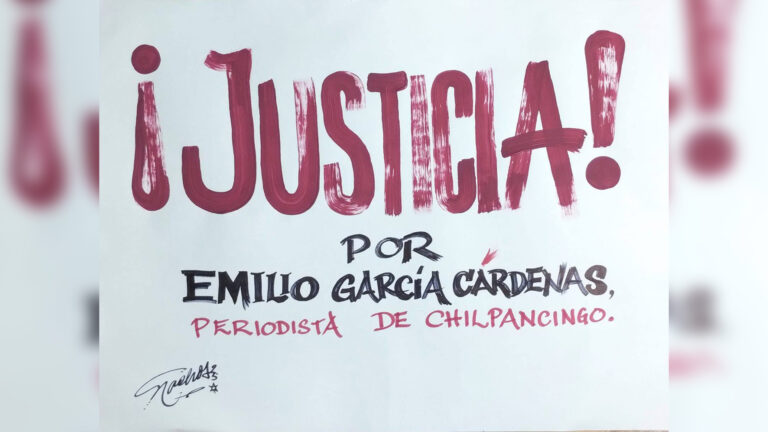 ¡JUSTICIA!
POR
EMILIO GARCÍA CÁRDENAS,
PERIODISTA DE CHILPANCINGO.